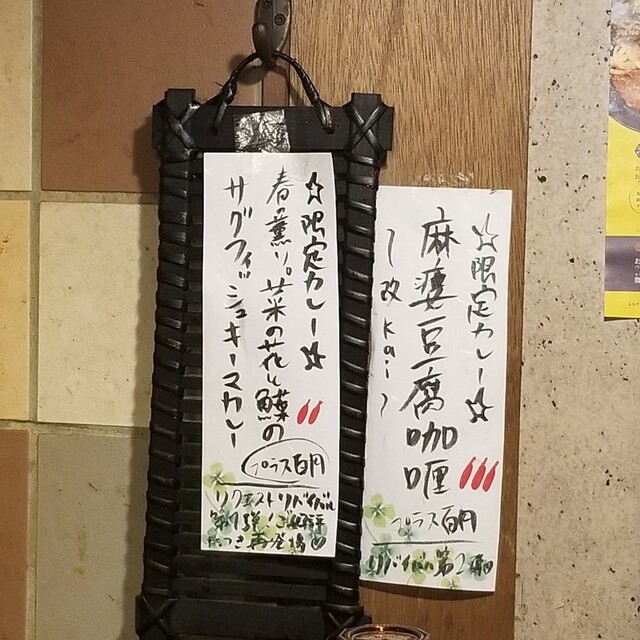 ☆限定カレー☆
春の薫り。菜の花と鰆の
サグフィッシュキーマカレー
プラス百円
リクエストリバイバル
第1弾!ご好評
につき再登場♡
☆限定カレー☆
麻婆豆腐咖喱
〜改 kai〜
プラス百円
リバイバル第2弾♡